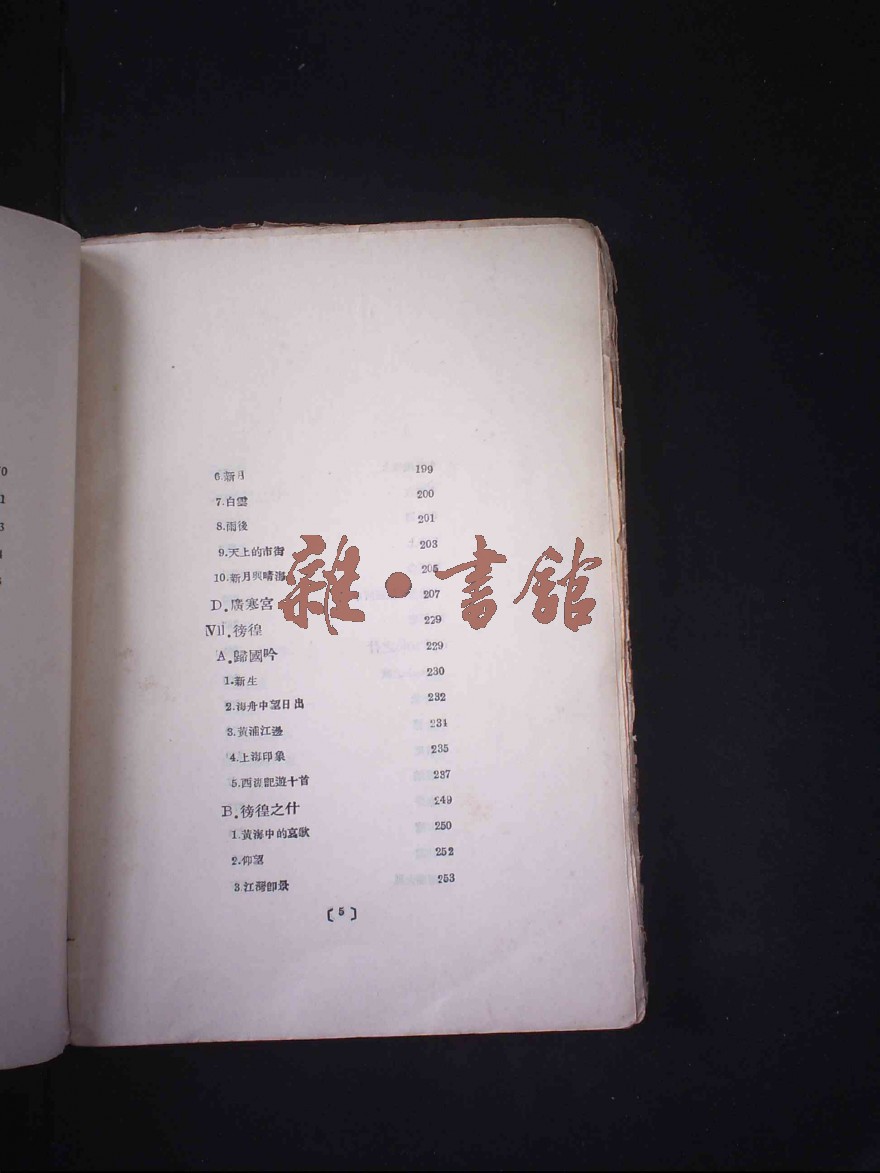 6.新月 199
7.白雲 200
8.雨後 201
9.天上的市街 203
10.新月與晴海 205
D.廣寒宮 207
VII.徬徨 229
A.歸國吟 229
1.新生 230
2.海舟中望日出 232
3.黃浦江邊 234
4.上海印象 235
5.西湖記遊十首 237
B.徬徨之什 249
1.黃海中的哀歌 250
2.仰望 252
3.江灣卽景 253
〔5〕
雜·書館